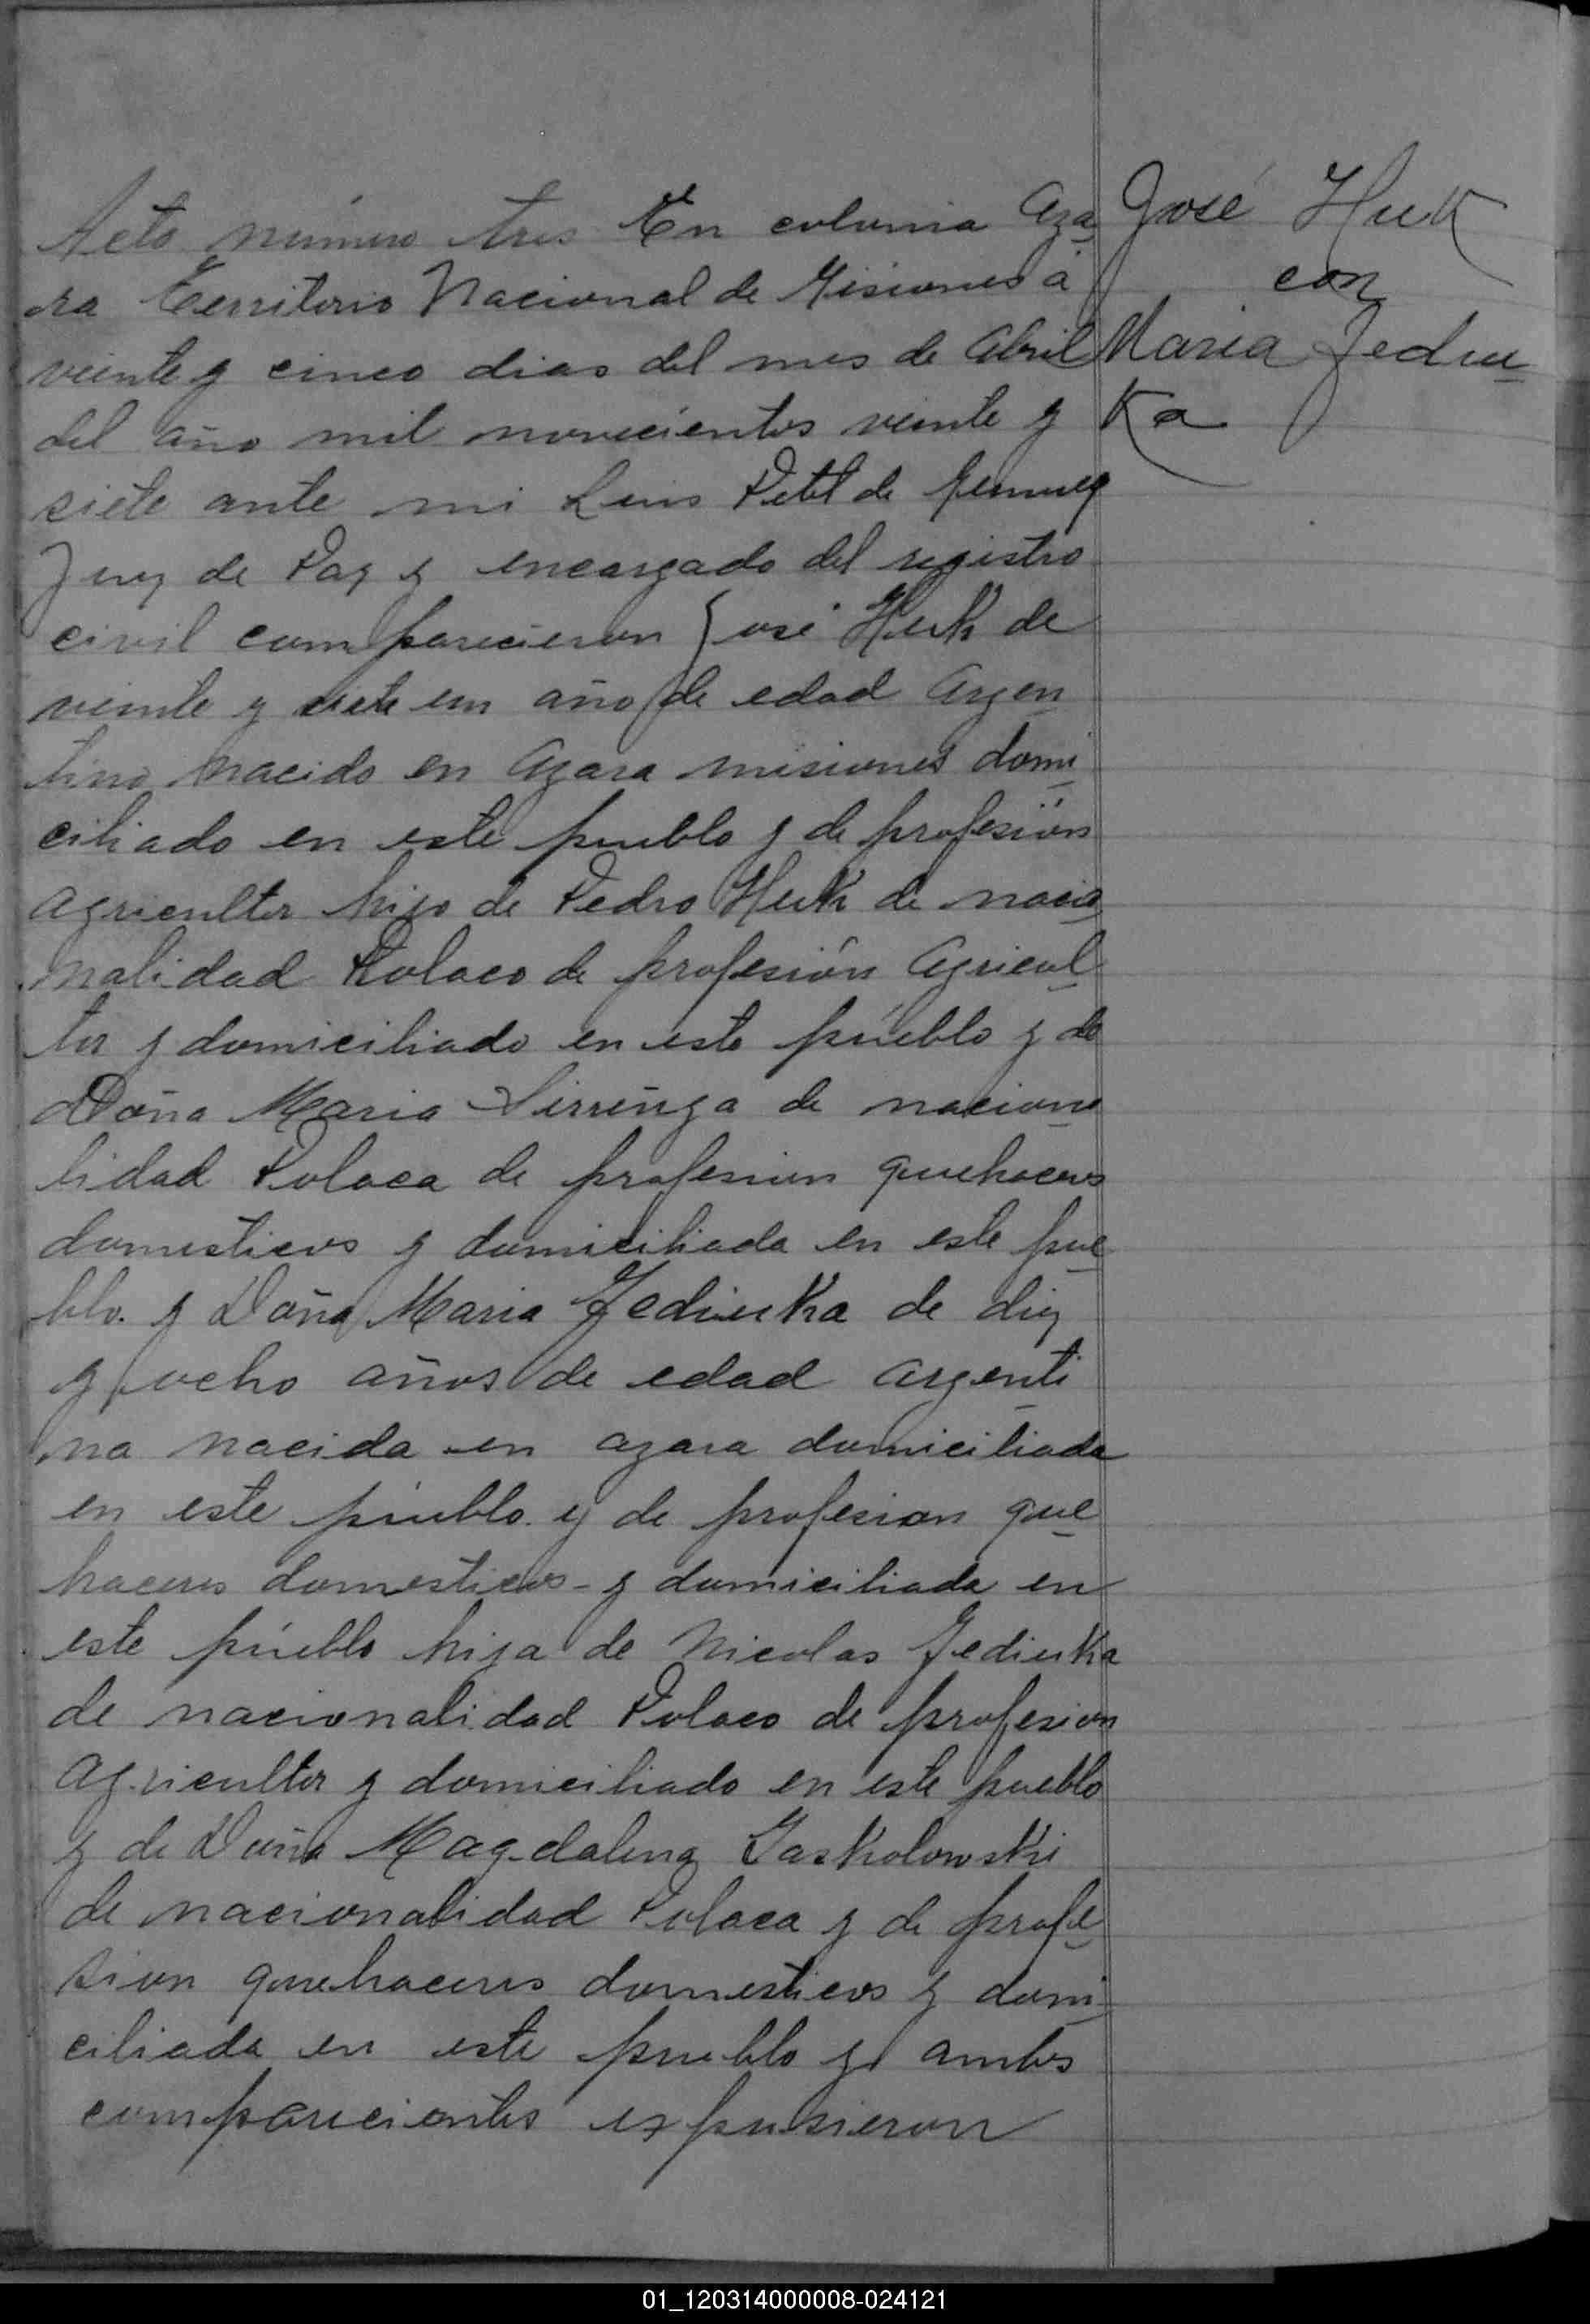 Acto número tres En colonia Aza
ra Territorio Nacional de Misiones á
veinte y cinco dias del mes de Abril
del año mil novecientos veinte y
siete ante mi Luis Petit de
Juez de Paz y encargado del registro
civil comparecieron José Huk de
veinte y siete un año de edad Argen
tino nacido en Azara misiones domi
ciliado en este pueblo y de profesión
agricultor hijo de Pedro Huk de nacio
nalidad Polaco de profesión Agricul
tor y domiciliado en este pueblo y de
Doña Maria de naciona
lidad Polaca de profesion quehaceres
domesticos y domiciliada en este pue
blo. y Doña Maria Jediuka de diez
y ocho años de edad argenti
na nacida en azara domiciliada
en este pueblo. y de profesion que
haceres domesticos - y domiciliada en
este pueblo hija de Nicolas Jediuka
de nacionalidad Polaco de profesion
agricultor y domiciliado en este pueblo
y de Doña Magdalena Jaskolowski
de nacionalidad Polaca y de profe
sion quehaceres domesticos y domi
ciliada en este pueblo y ambos
comparecientes expusieron
José Huk
con
Maria Jediu
Ka
01_120314000008-024121